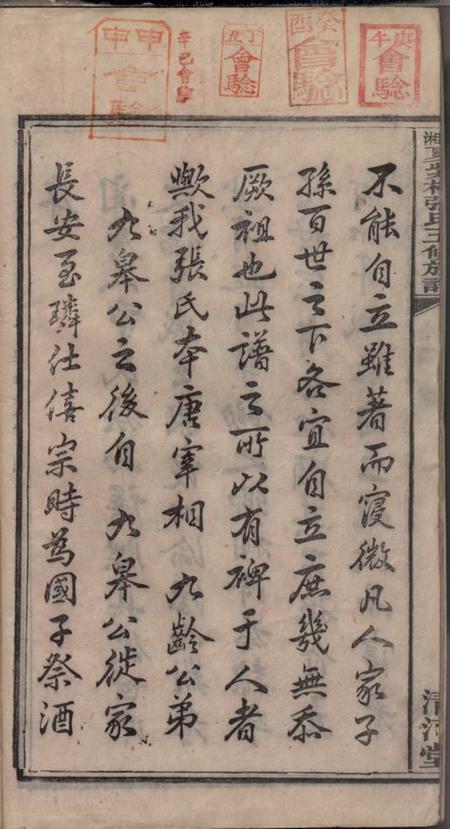 庚午會驗
癸酉會驗
丁丑會驗
辛巳會驗
甲申會驗
不能自立雖著而寖微凡人家子
孫百世之下各宜自立庶幾無忝
厥祖也此譜之所以有裨于人者
歟我張氏本唐宰相九齡公弟
九皋公之後自九皋公徙家
長安至璘仕僖宗時為國子祭酒
張氏五修族譜
清河堂